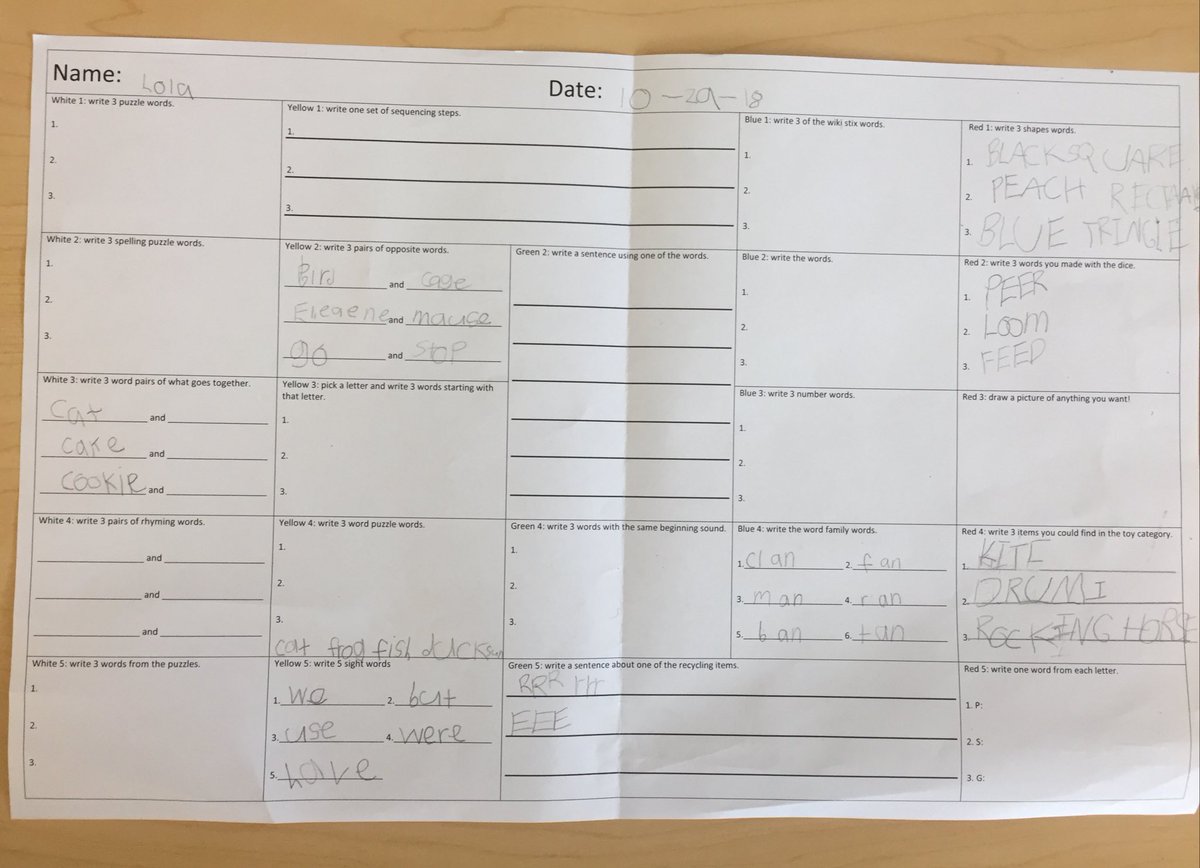 Name: Lola
Date: 10-29-18
White 1: write 3 puzzle words.
1.
2.
3.
Yellow 1: write one set of sequencing steps.
1.
2.
3.
Blue 1: write 3 of the wiki stix words.
1.
2.
3.
Red 1: write 3 shapes words.
1. BLACK SQUARE
2. PEACH RECTAN
3. BLUE TRINGLE
White 2: write 3 spelling puzzle words.
1.
2.
3.
Yellow 2: write 3 pairs of opposite words.
Bird and cage
and mauce
go and stop
Green 2: write a sentence using one of the words.
Blue 2: write the words.
1.
2.
3.
Red 2: write 3 words you made with the dice.
1. PEER
2. LOOM
3. FEED
White 3: write 3 word pairs of what goes together.
cat and
cake and
cookie and
Yellow 3: pick a letter and write 3 words starting with
that letter.
1.
2.
3.
Blue 3: write 3 number words.
1.
2.
3.
Red 3: draw a picture of anything you want!
White 4: write 3 pairs of rhyming words.
and
and
and
Yellow 4: write 3 word puzzle words.
1.
2.
3.
cat frog fish duck sun
Green 4: write 3 words with the same beginning sound.
1.
2.
3.
Blue 4: write the word family words.
1. clan 2. fan
3. man 4. ran
5. ban 6. tan
Red 4: write 3 items you could find in the toy category.
1. KITE
2. DRUMI
3. ROCKING HORSE
White 5: write 3 words from the puzzles.
1.
2.
3.
Yellow 5: write 5 sight words
1. we 2. but
3. use 4. were
5. have
Green 5: write a sentence about one of the recycling items.
RRR rrr
EEE
Red 5: write one word from each letter.
1. P:
2. S:
3. G: